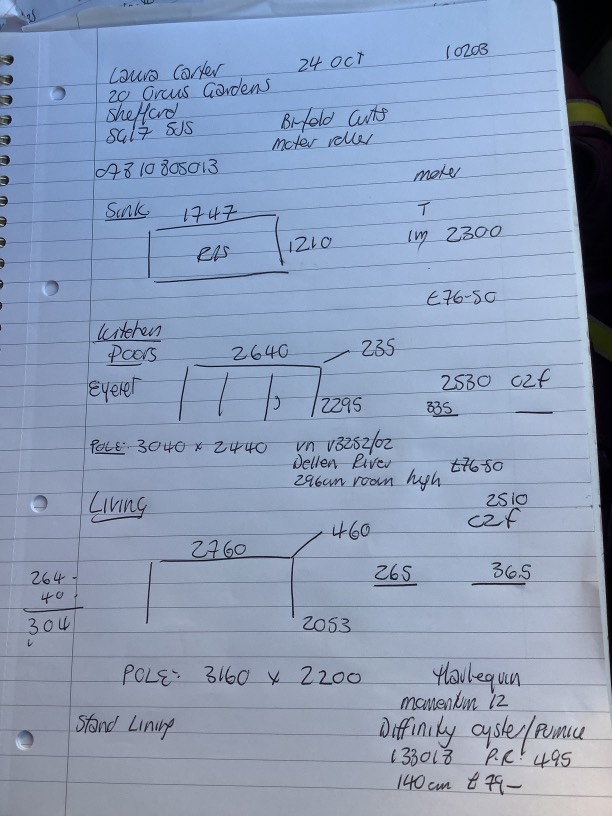 Laura Carter 24 Oct 10203
20 Orcus Gardens
Shefford
SG17 5JS Bi-fold Cuts
motor roller
07810805013
motor
Sink 1747 T
R/S 1210 1m 2300
£76-50
Kitchen
Doors 2640 235
Eyelet 2295 2530 C2f
335
POLE: 3040 x 2440 vn V3252/02
Dellen River £76-50
296cm room high
Living 2510
C2f
460
2760
264 265 36.5
40
304 2053
POLE:- 3160 x 2200 Harlequin
momentum 12
Stand Lining Diffinity oyster/Pumice
133013 P.R. 495
140cm £79-